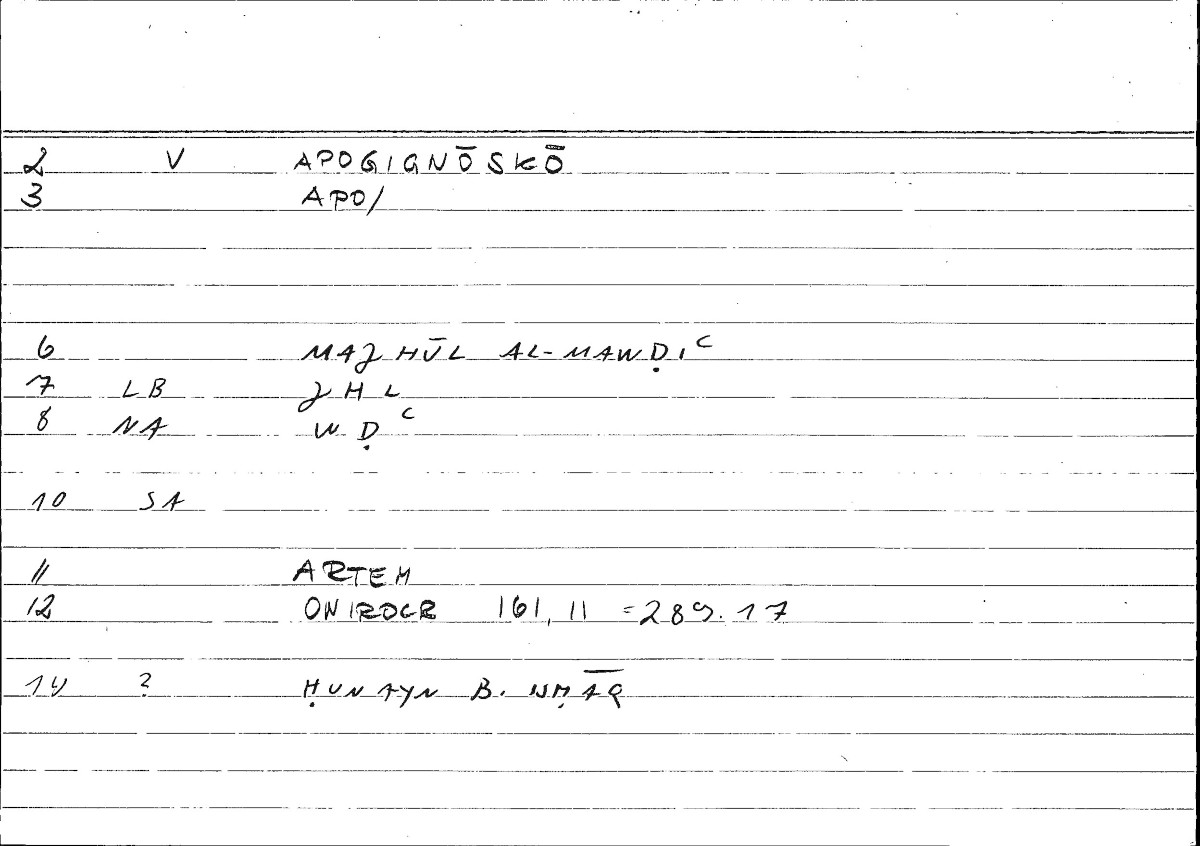 2 V APOGIGNŌSKŌ
3 APO/
6 MAJHŪL AL-MAWḌIᶜ
7 LB JHL
8 NA WḌᶜ
10 SA
11 ARTEM
12 ONIROCR 161, 11 = 289.17
14 ? ḤUNAYN B. ISḤĀQ